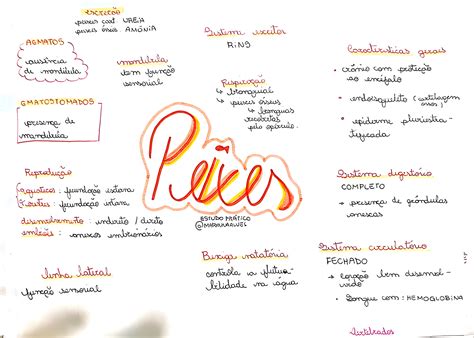 excreção
peixes cart. UREIA
peixes ósseos. AMÔNIA
AGNATOS
ausência
de mandíbula
mandíbula
tem função
sensorial
Sistema excretor
RiNS
Características gerais
• crânio com proteção
ao encéfalo
• endoesqueleto (cartilagem
• epiderme pluriestra-
tificada
GNATOSTOMADOS
presença de
mandíbula
Respiração
↳ branquial
↳ peixes ósseos
↳ brânquias
recobertas
pelo opérculo.
Peixes
ESTUDO PRÁTICO
Reprodução
aquáticos: fecundação externa
fecundação interna
desenvolvimento: indireto / direto
embriões: anexos embrionários
Sistema digestório
COMPLETO
→ presença de glândulas
anexas
linha lateral
função sensorial
Bexiga natatória
controla a flutua-
bilidade na água
Sistema circulatório
FECHADO
↳ coração bem desenvol-
vido
• Sangue com: HEMOGLOBINA
Vertebrados